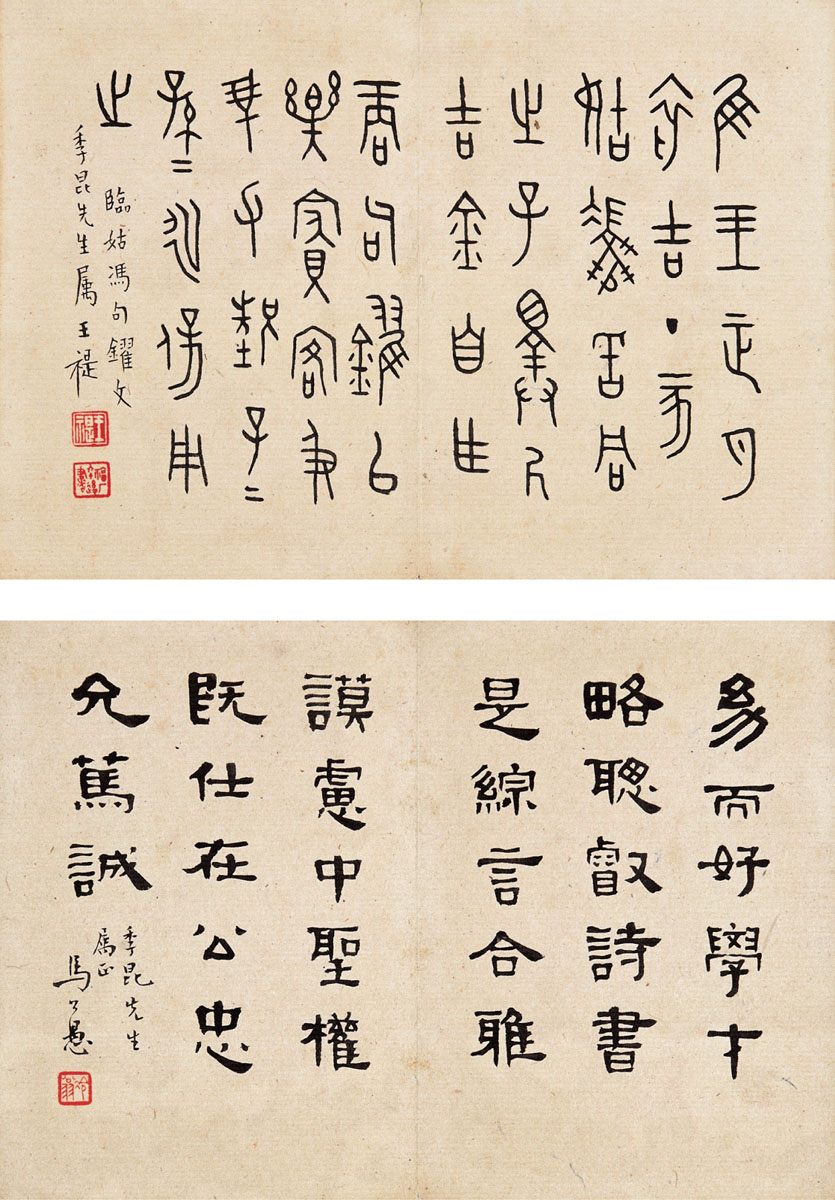 隹王正月
初吉丁亥
姑馮昏同
之子擇厥
吉金自乍
商句鑃以
樂賓客及
我父兄子＝
孫＝永保用
之
臨姑馮句鑃文
季昆先生属王禔
王禔
幼而好學才
略聰叡詩書
是綜言合雅
謨慮中聖權
既仕在公忠
允篤誠
季昆先生
属正
馬公愚